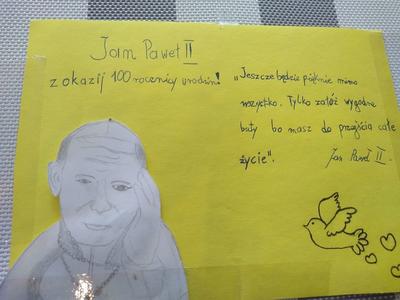 Jan Paweł II
z okazji 100 rocznicy urodzin!
„Jeszcze będzie pięknie mimo
wszystko. Tylko załóż wygodne
buty bo masz do przejścia całe
życie".
Jan Paweł II.